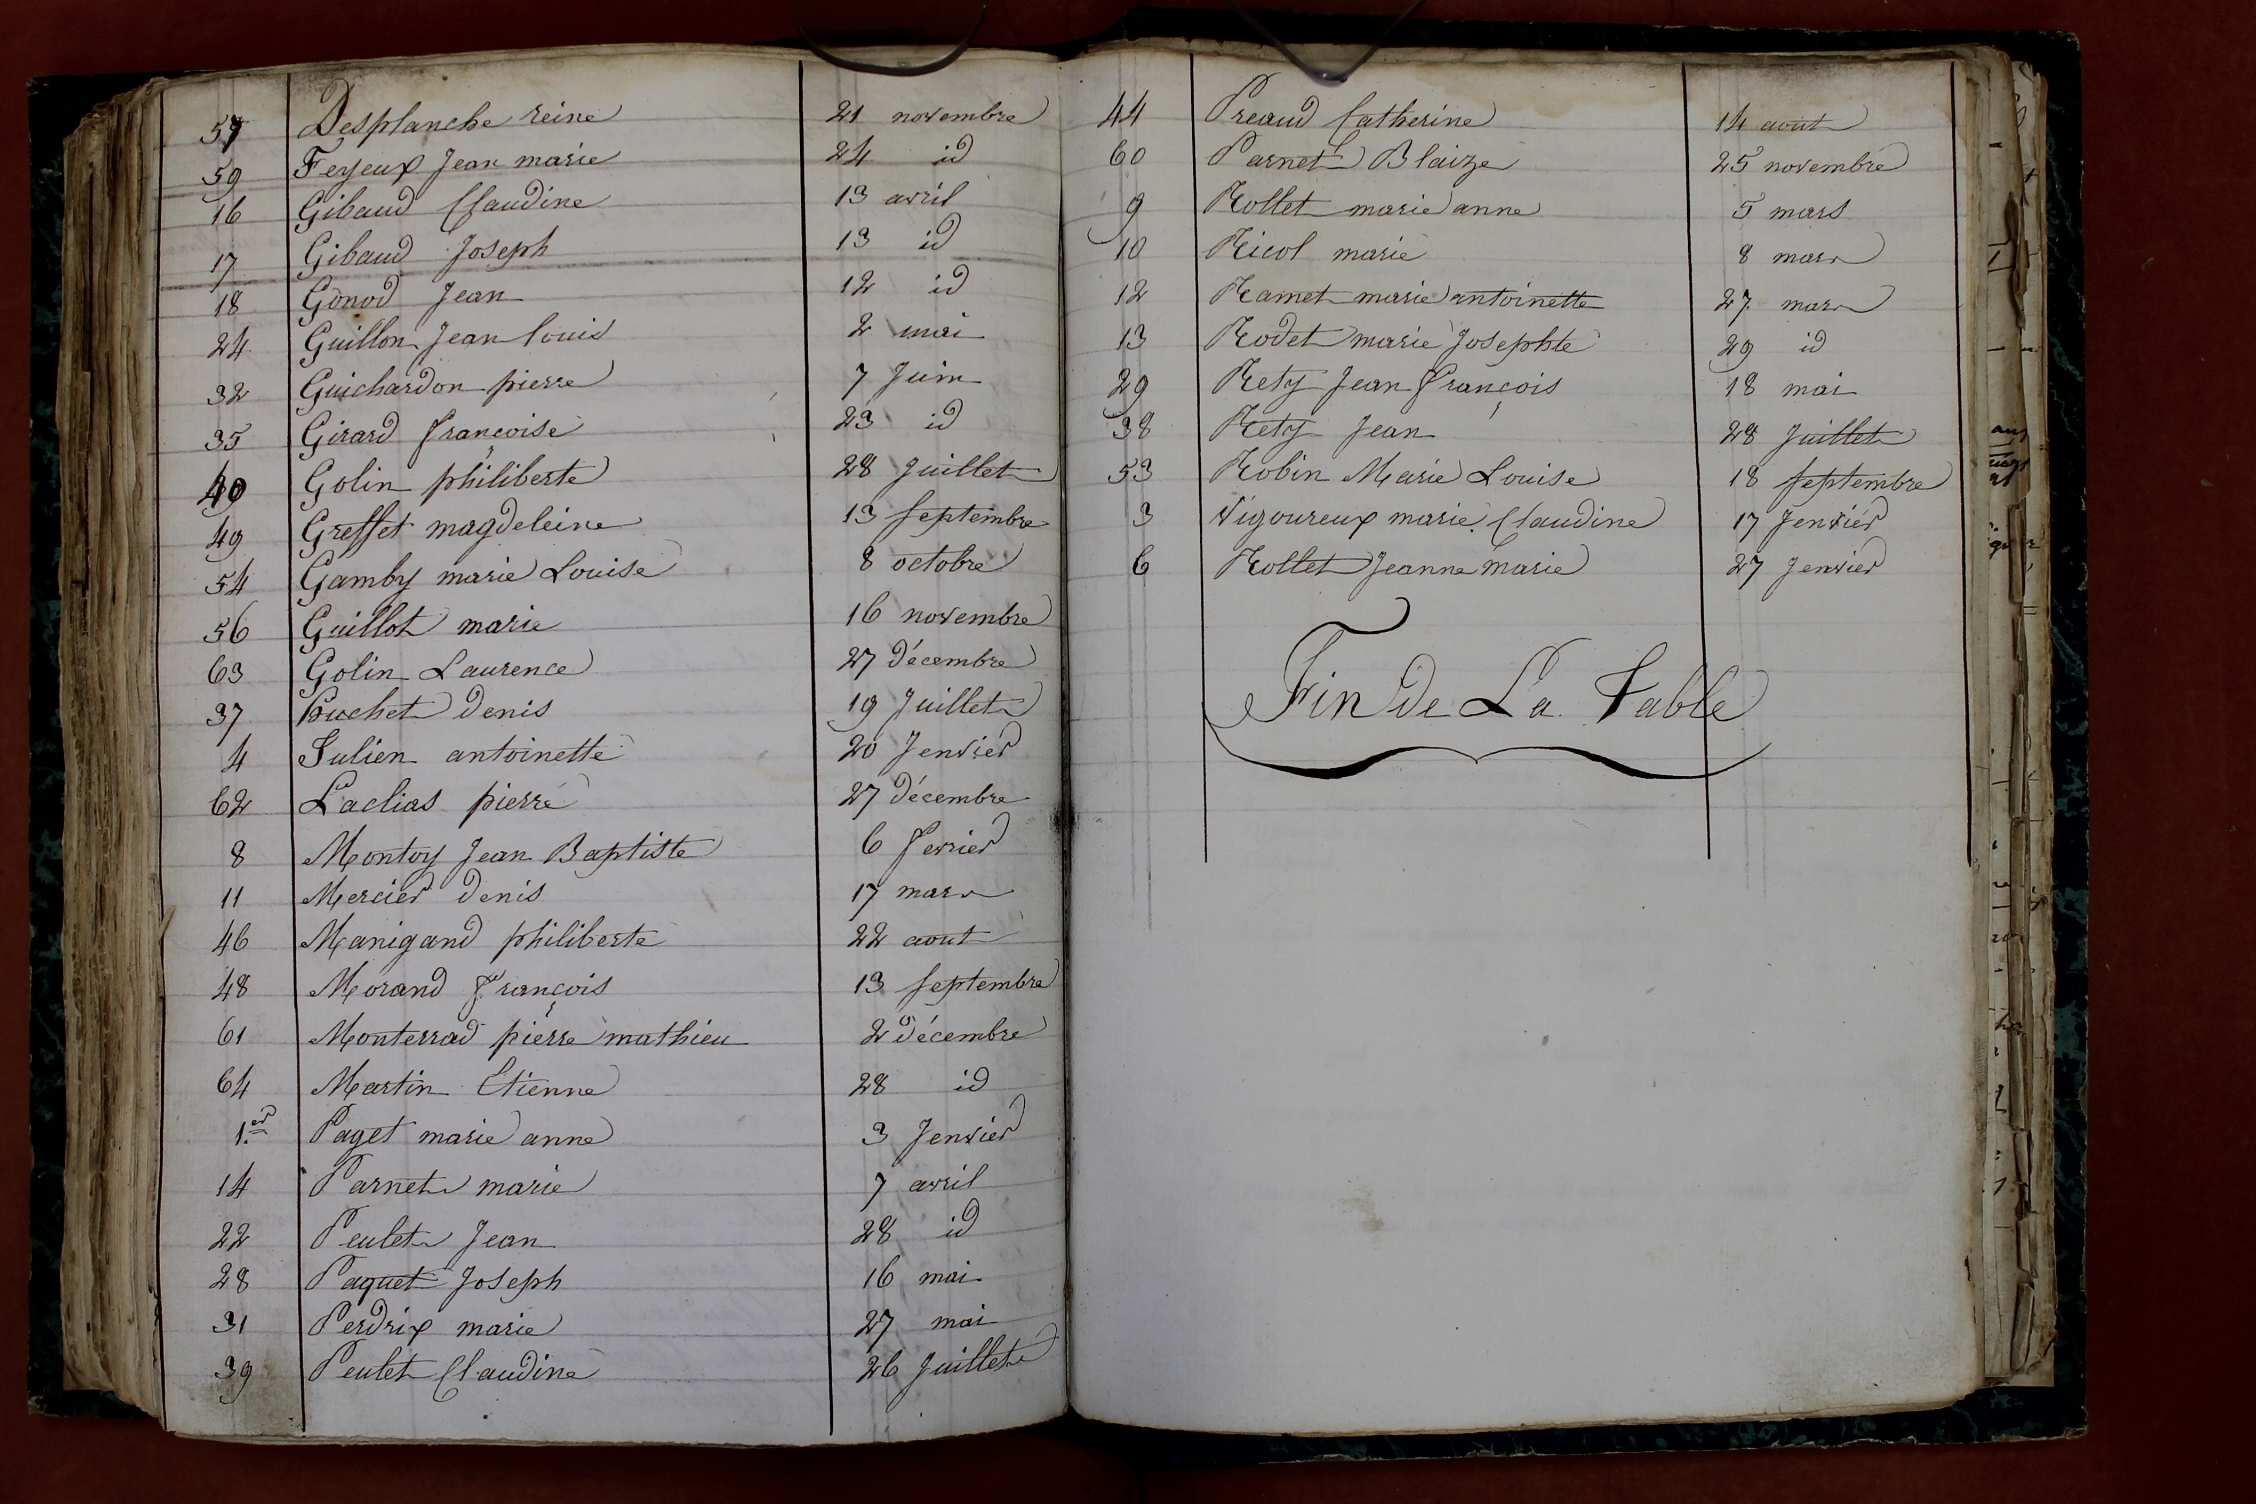 57 Desplanche reine 21 novembre
59 Feyeux Jean marie 24 id
16 Gibaud Claudine 13 avril
17 Gibaud Joseph 13 id
18 Gonod Jean 12 id
24 Guillon Jean Louis 2 mai
32 Guichardon pierre 7 Juin
35 Girard françoise 23 id
40 Golin philiberte 28 Juillet
49 Greffet magdeleine 13 septembre
54 Gamby marie Louise 8 octobre
56 Guillot marie 16 novembre
63 Golin Laurence 27 décembre
37 Huchet denis 19 Juillet
4 Julien antoinette 20 Jenvier
62 Laclias pierre 27 décembre
8 Montoy Jean Baptiste 6 fevrier
11 Mercier denis 17 mars
46 Manigand philiberte 22 aout
48 Morand françois 13 septembre
61 Monterrad pierre mathieu 2 décembre
64 Martin Etienne 28 id
1.er Paget marie anne 3 Jenvier
14 Parnet marie 7 avril
22 Peulet Jean 28 id
28 Paquet Joseph 16 mai
31 Perdrix marie 27 mai
39 Peulet Claudine 26 Juillet
44 Preaud Catherine 14 aout
60 Parnet Blaize 25 novembre
9 Rollet marie anne 5 mars
10 Ricol marie 8 mars
12 Ramet marie antoinette 27 mars
13 Rodet marie Josephte 29 id
29 Rety Jean François 18 mai
38 Rety Jean 28 Juillet
53 Robin Marie Louise 18 septembre
3 Vigoureux marie Claudine 17 Jenvier
6 Rollet Jeanne marie 27 Jenvier
Fin de La Table